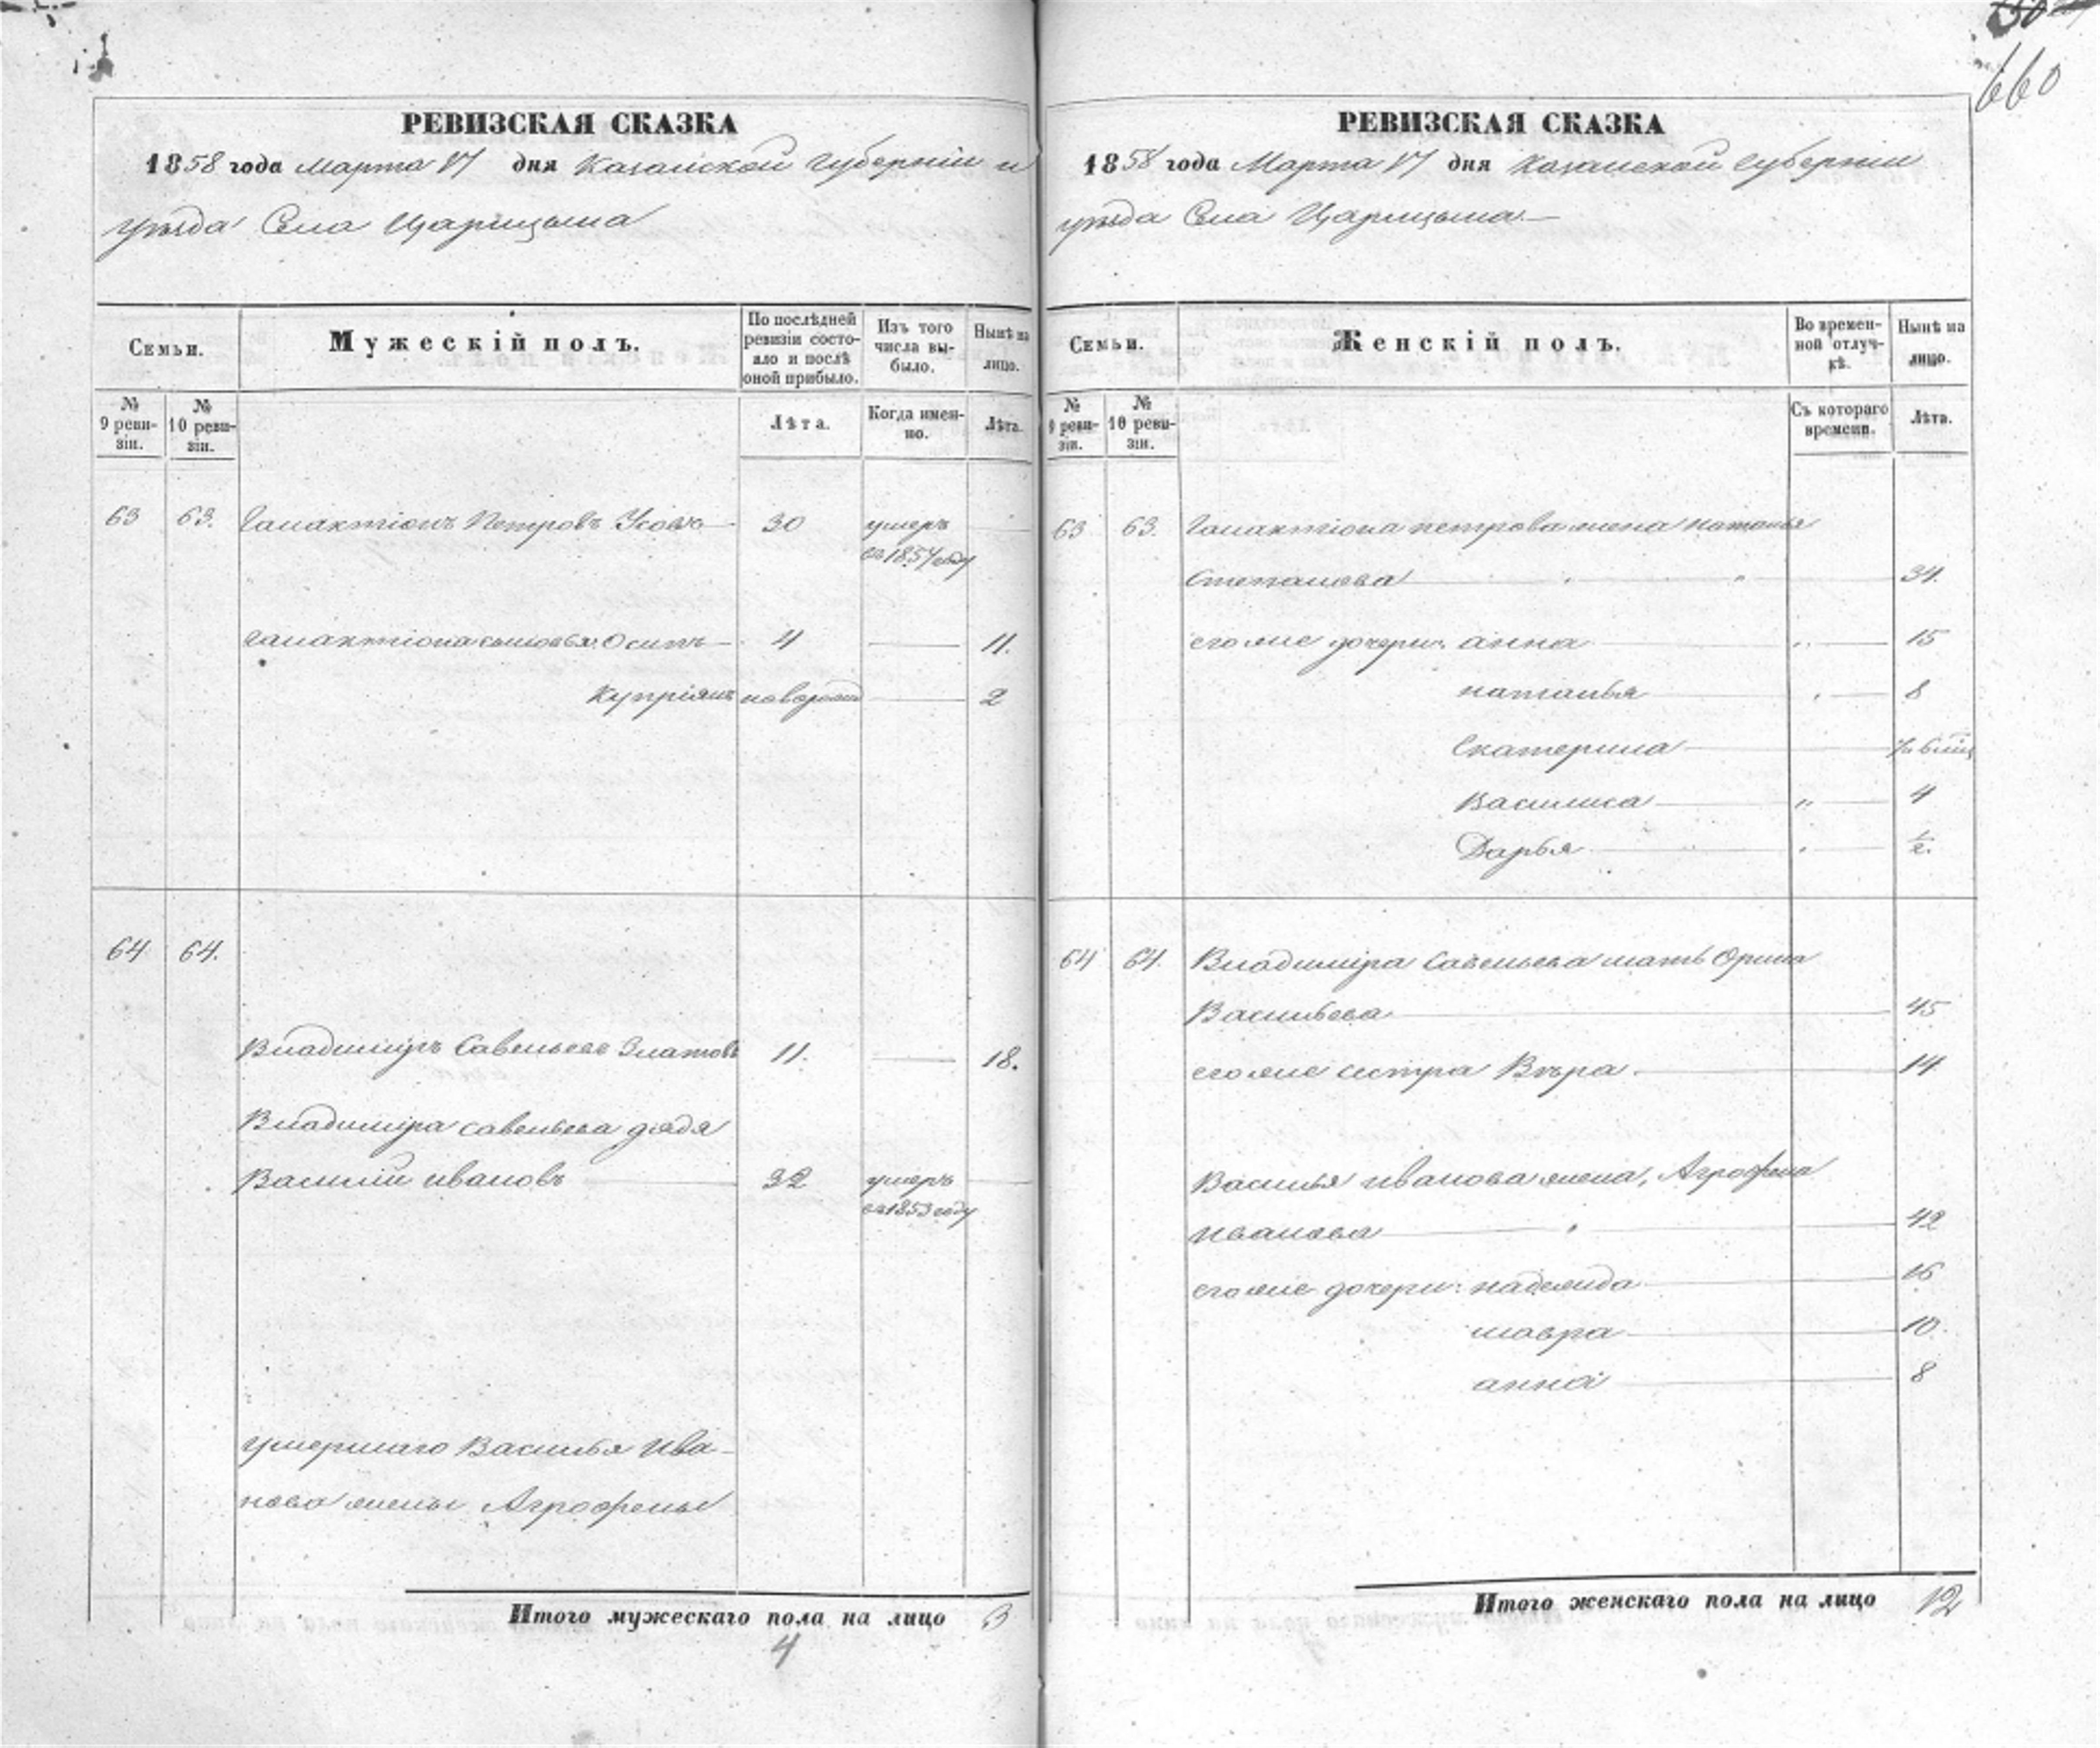 660
РЕВИЗСКАЯ СКАЗКА
1858 года Марта 17 дня Казанской Губерніи и
уѣзда Села Царицына
Семьи.
Мужескій полъ.
По послѣдней ревизіи состояло и послѣ оной прибыло.
Изъ того числа выбыло.
Нынѣ на лицо.
№ 9 ревизіи.
№ 10 ревизіи.
Лѣта.
Когда именно.
Лѣта.
63 63. Галактіонъ Петровъ Усовъ 30 умеръ
въ 1854 году
Галактіона сыновья: Осипъ 4 11.
Купріянъ новорожд 2
64 64.
Владиміръ Савельевъ Златовъ 11. 18.
Владиміра Савельева дядя
Василій Ивановъ 32 умеръ
въ 1853 году
умершаго Василья Ива-
нова жены Агрофены
Итого мужескаго пола на лицо 3
4
РЕВИЗСКАЯ СКАЗКА
1858 года Марта 17 дня Казанской Губерніи
уѣзда Села Царицына
Семьи.
Женскій полъ.
Во временной отлучкѣ.
Нынѣ на лицо.
№ 9 ревизіи.
№ 10 ревизіи.
Съ котораго времени.
Лѣта.
63 63. Галактіона Петрова жена Наталья
Степанова 34.
его же дочери: Анна 15
Наталья 8
Екатерина
Василиса 4
Дарья 1/2.
64 64. Владиміра Савельева мать Орина
Васильева 45
его же сестра Вѣра. 14
Василья Иванова жена, Агрофена
Иванова 42
его же дочери: Надежда 16
Мавра 10.
Анна 8
Итого женскаго пола на лицо 12